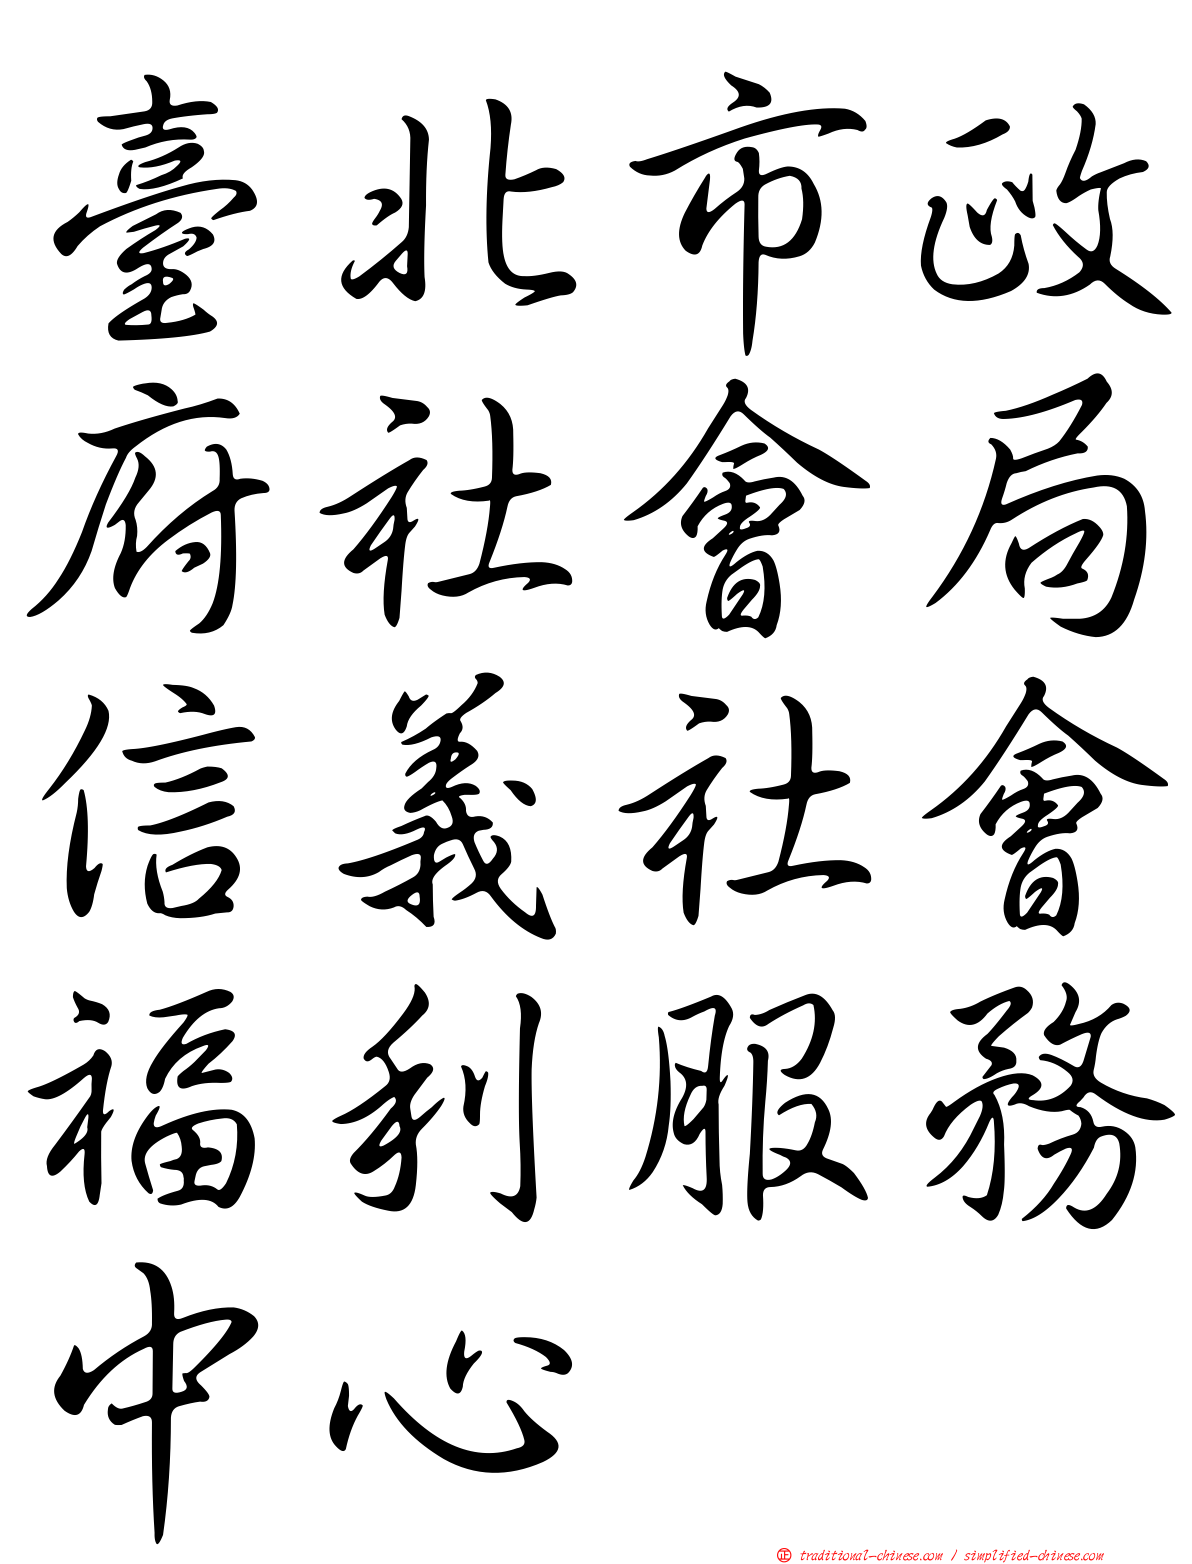 臺北市政
府社會局
信義社會
福利服務
中心
正 traditional-chinese.com / simplified-chinese.com